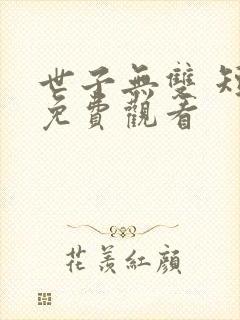 世子無雙 短
免費觀看
花羨紅顏